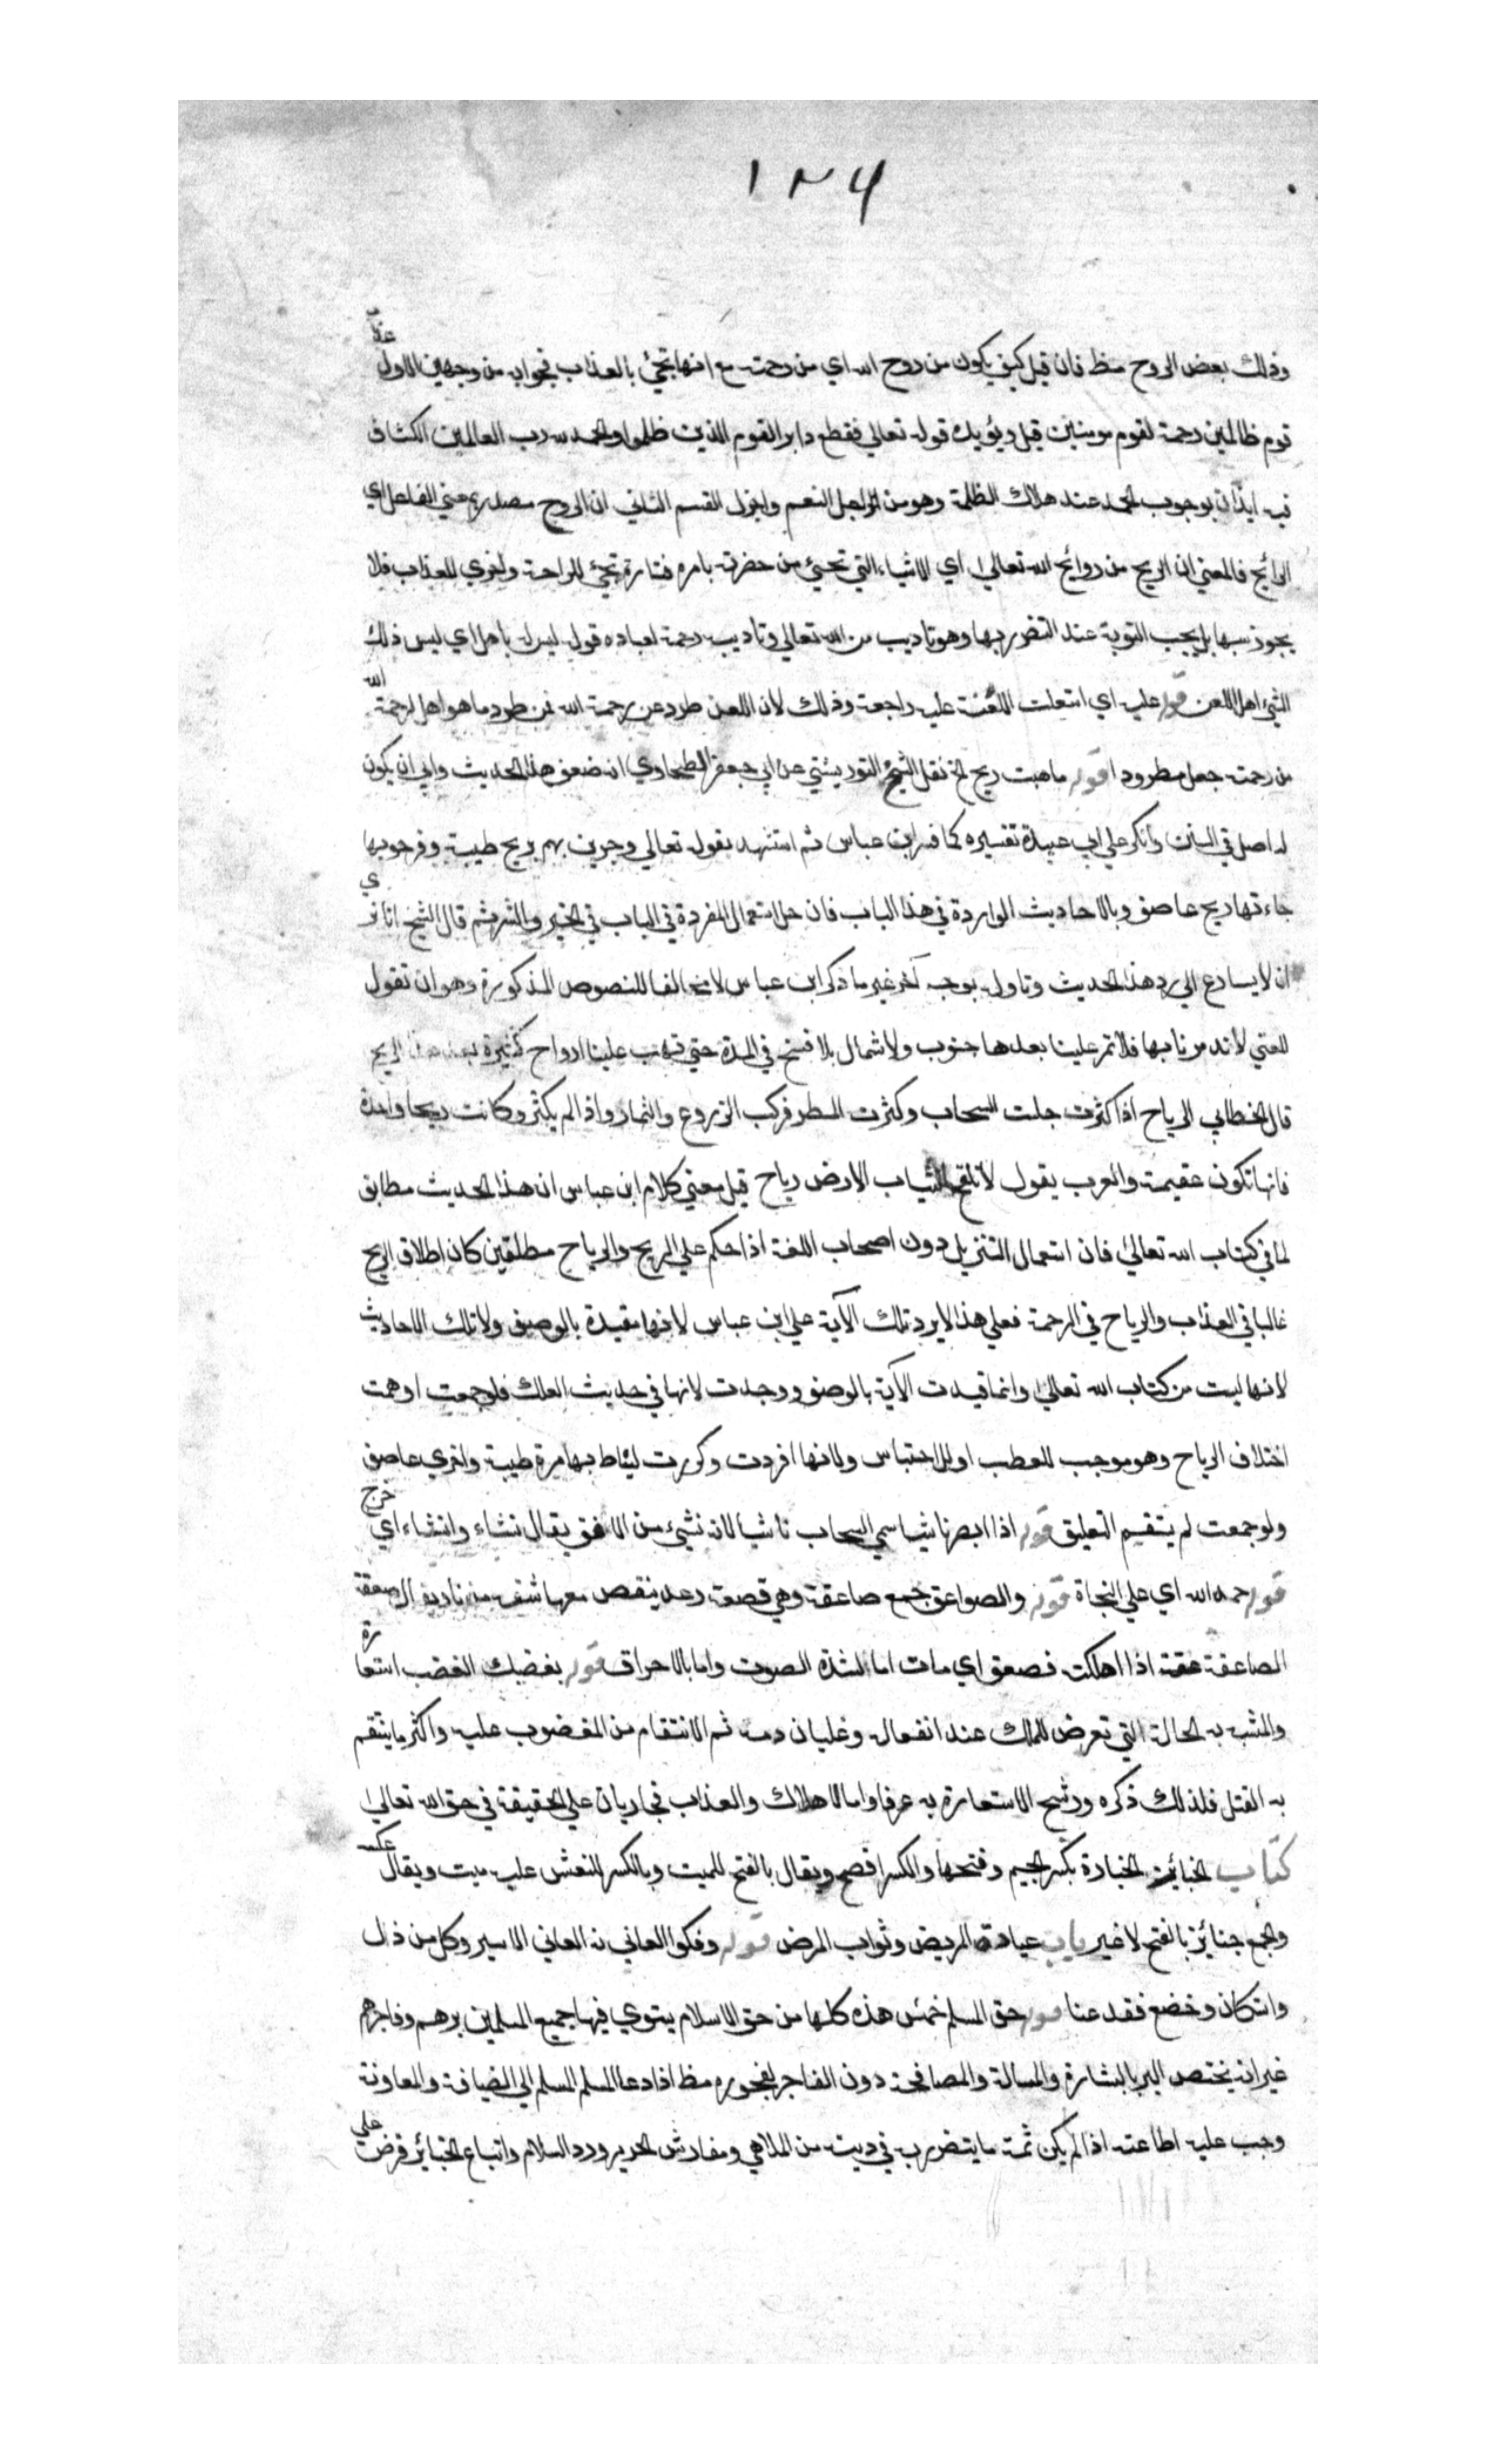 ١٣٦
وذلك بعض الروح مظ فان قيل كيف يكون من روح الله اي من رحمته مع انها تجئ بالعذاب فجوابه من وجهين الاول عذاب
قوم ظالمين رحمة لقوم مومنين قيل ويؤيده قوله تعالي فقطع دابر القوم الذين ظلموا والحمد لله رب العالمين الكشاف
فيه ايذان بوجوب الحمد عند هلاك الظلمة وهو من اجل النعم واجزل القسم الثاني ان الروح مصدر بمعني الفاعل اي
الرائح فالمعني ان الريح من روائح الله تعالي اي الاشياء التي تجئ من حضرته بامره فتارة تجئ للراحة واخري للعذاب فلا
يجوز سبها بل يجب التوبة عند التضرر بها وهو تاديب من الله تعالي وتاديبه رحمة لعباده قوله ليس له باهل اي ليس ذلك
الشئ اهل اللعن قوله عليه اي استعلت اللعنة عليه راجعة وذلك لان اللعن طرد عن رحمة الله فمن طرد ما هو اهل لرحمة الله
من رحمته جعل مطرودا قوله ما هبت ريح الخ نقل الشيخ التوربشتي عن ابي جعفر الطحاوي انه ضعف هذا الحديث وابي ان يكون
له اصل في السنن وانكر علي ابي عبيدة تفسيره كما فسر ابن عباس ثم استشهد بقوله تعالي وجرين بهم بريح طيبة وفرحوا بها
جاءتها ريح عاصف وبالاحاديث الواردة في هذا الباب فان جل استعمال المفردة في الباب في الخير والشر ثم قال الشيخ انا نري
ان لا يسارع الي رد هذا الحديث وتاوله بوجه آخر غير ما ذكر ابن عباس لا مخالفا للنصوص المذكورة وهو ان تقول
للعتي لا تدمرنا بها فلا تمر علينا بعدها جنوب ولا شمال بلا فسح في المدة حتي تهب علينا ارواح كثيرة بعد هذا الريح
قال الخطابي الرياح اذا كثرت جلت السحاب وكثرت المطر فركب الزروع والثمار واذا لم يكثر وكانت ريحا واحدة
فانها تكون عقيمة والعرب يقول لا تلقح الارض رياح قيل معني كلام ابن عباس ان هذا الحديث مطابق
لما في كتاب الله تعالي فان استعمال التنزيل دون اصحاب اللغة اذا حكم علي الريح والرياح مطلقين كان اطلاق الريح
غالبا في العذاب والرياح في الرحمة فعلي هذا لا يرد تلك الآية علي ابن عباس لانها مقيدة بالوصف ولا تلك الاحاديث
لانها ليست من كتاب الله تعالي وانما قيدت الآية بالوصف ووحدت لانها في حديث الفلك فلو جمعت اوهمت
اختلاف الرياح وهو موجب للعطب او للاحتباس ولانها افردت وكررت ليناط بها مرة طيبة واخري عاصف
ولو جمعت لم يستقيم التعليق قوله اذا ابصرنا شيا سمي السحاب ناشيا لانه نشئ من الافق يقال نشاء وانشاء اي خرج
قوله حمد الله اي علي النجاة قوله والصواعق جمع صاعقة وهي قصعة رعد ينقض معها شقة من نار يقال صعقته
الصاعقة اذا اهلكته فصعق اي مات اما لشدة الصوت واما بالاحراق قوله بغضبك الغضب استعارة
والمشبه به الحالة التي تعرض للملك عند انفعاله وغليان دمه ثم الانتقام من المغضوب عليه واكثر ما ينتقم
به القتل فلذلك ذكره ورشح الاستعارة به عرفا واما الاهلاك والعذاب فجاريان علي الحقيقة في حق الله تعالي
كتاب الجنائز الجنازة بكسر الجيم وفتحها والكسر افصح ويقال بالفتح للميت وبالكسر للنعش عليه ميت ويقال عكسه
والجمع جنائز بالفتح لا غير باب عيادة المريض وثواب المرض قوله وفكوا العاني نه العاني الاسير وكل من ذل
واستكان وخضع فقد عنا قوله حق المسلم خمس هذه كلها من حق الاسلام يستوي فيها جميع المسلمين برهم وفاجرهم
غير انه يختص البر بالبشارة والمسالة والمصافحة دون الفاجر لفجوره مظ اذا دعا المسلم المسلم الي الضيافة والمعاونة
وجب عليه اطاعته اذا لم يكن ثمة ما يتضرر به في ديته من الملاهي ومفارش الحرير ورد السلام واتباع الجنائز فرض علي